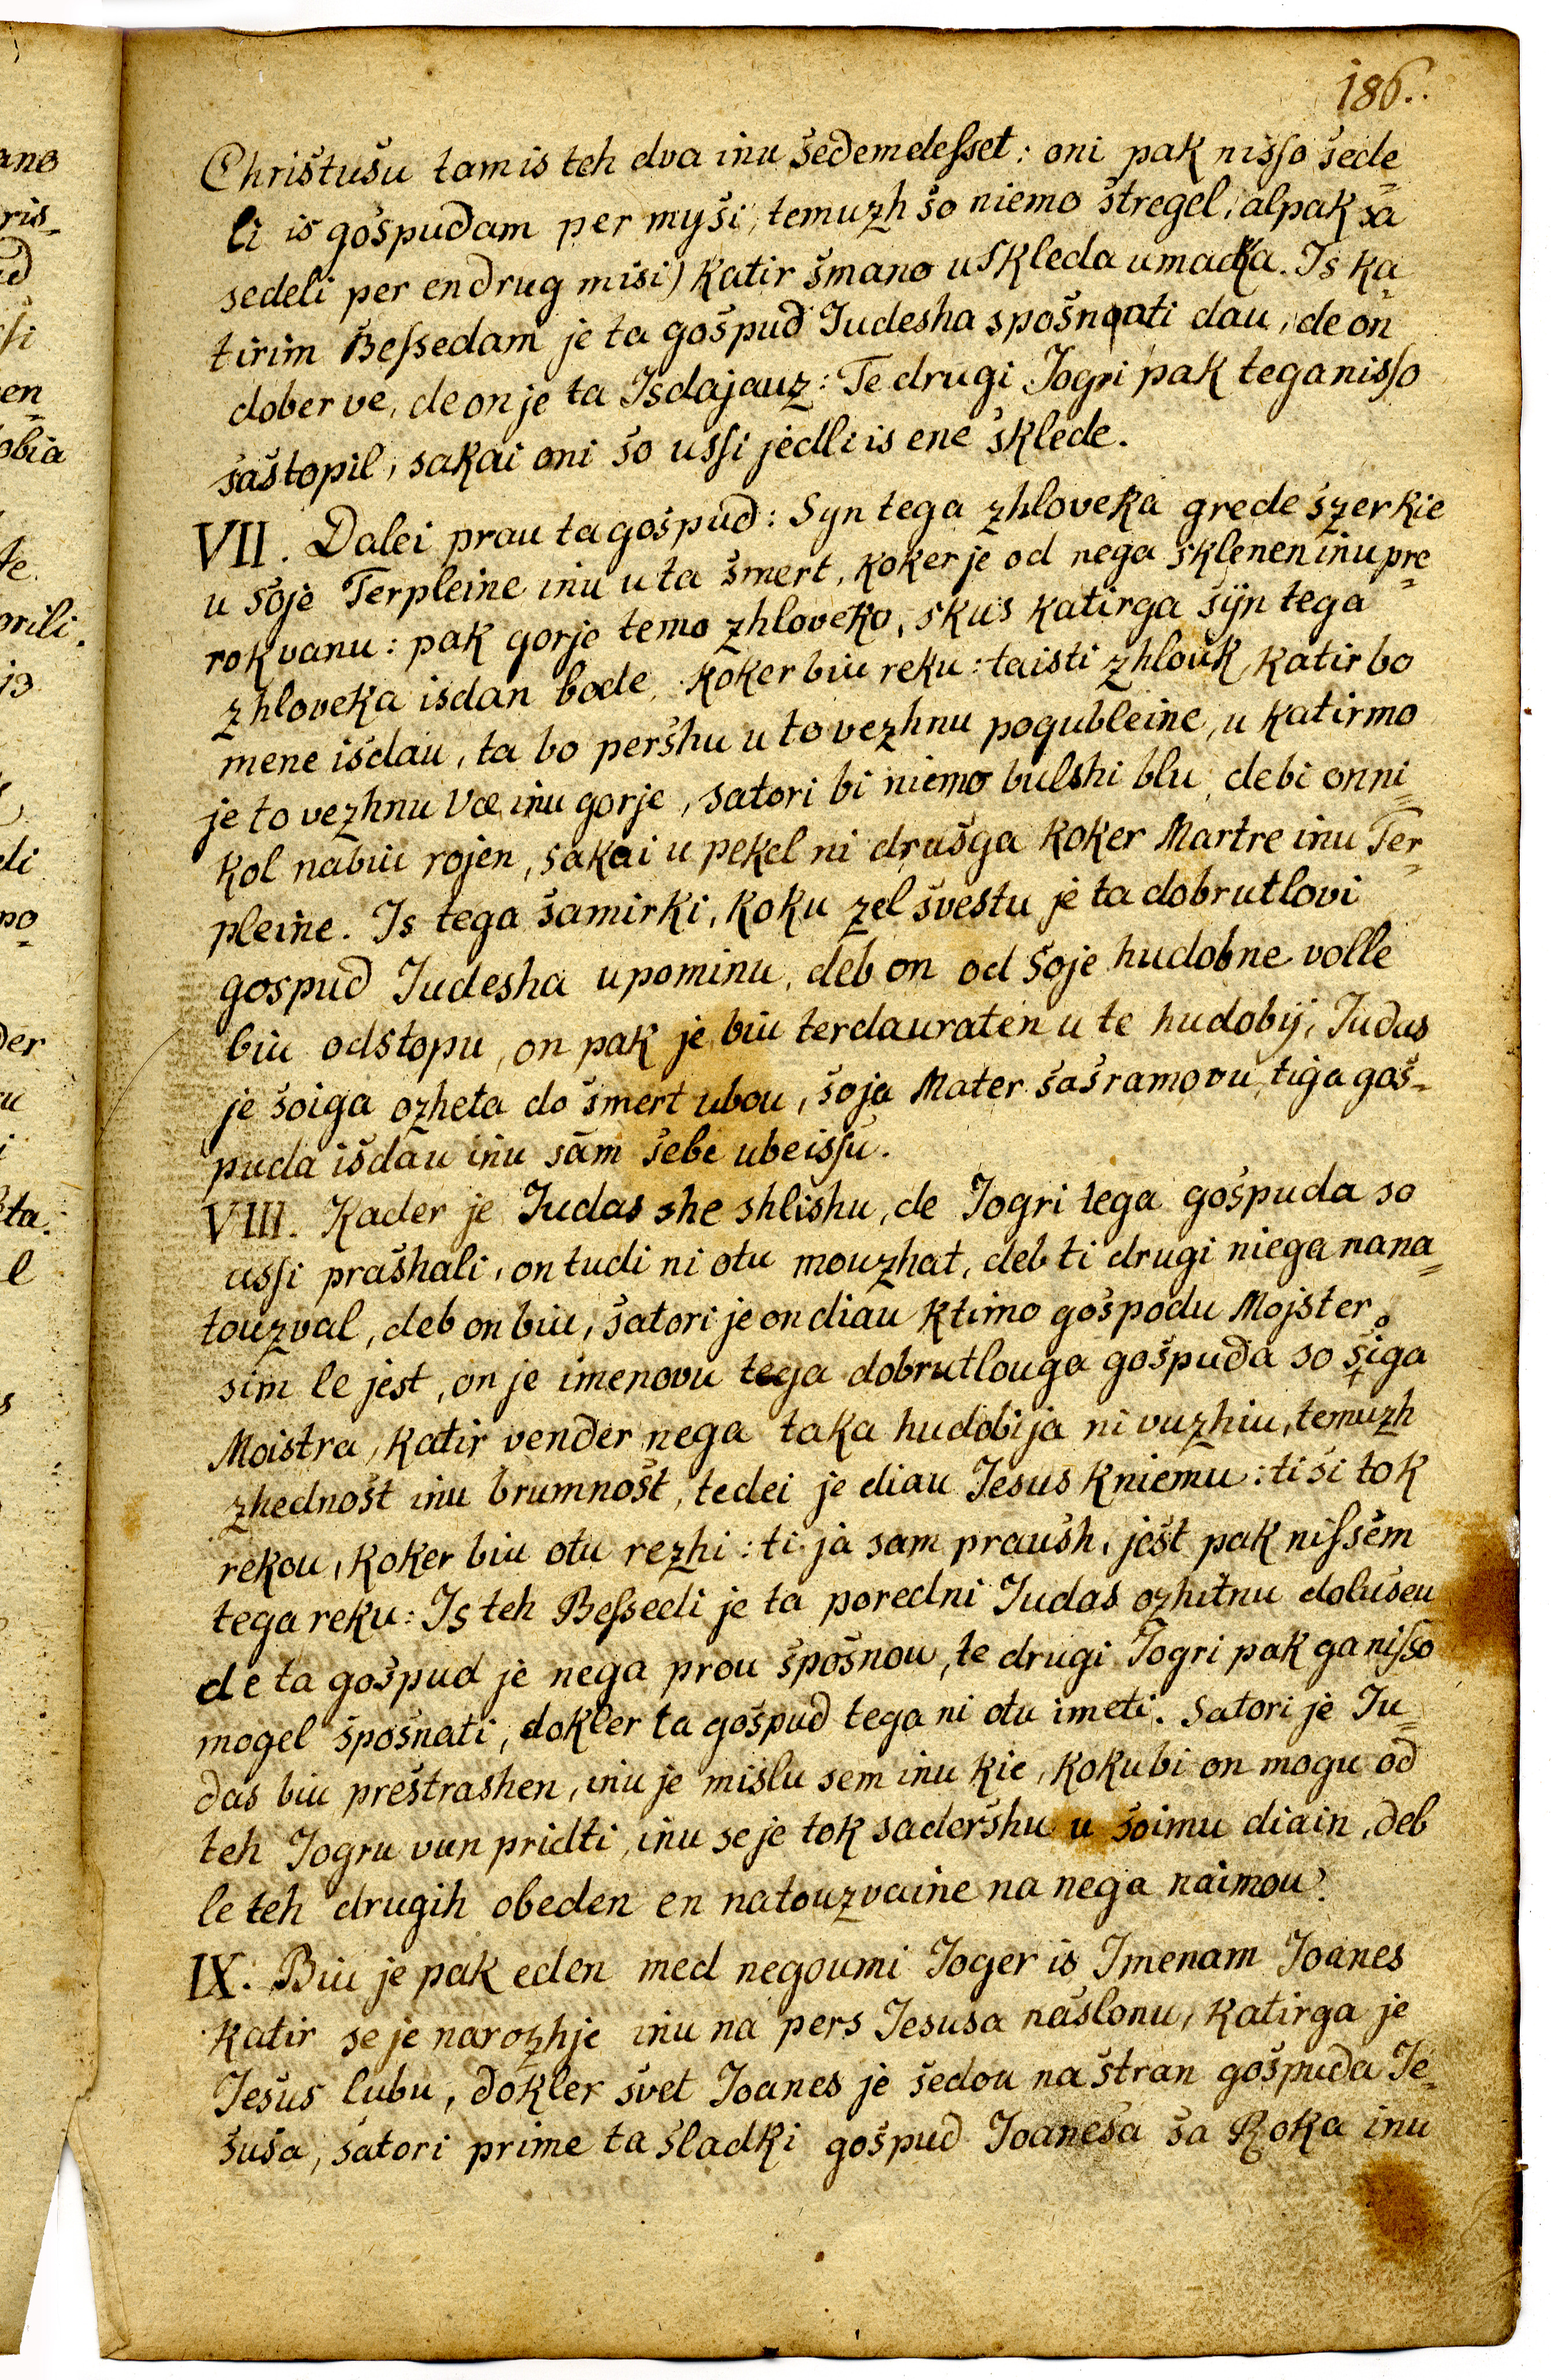 186.
Christušu tam is teh dva inu šedemdeſset: oni pak nisſo šede=
li is gošpudam per myši, temuzh šo niemo štregel, alpak sa
sedeli per endrug misi) katir šmano u skleda umadka. Is ka=
tirim Beſsedam je ta gošpud Judesha spošnati dau, de on
dober ve, de on je ta Isdajauz: Te drugi Jogri pak tega nisſo
šaštopil, sakai oni šo usſi jedli is ene šklede.
VII. Dalei prau ta gošpud: Syn tega zhloveka grede šzer kie
u šoje Terpleine inu u ta šmert, koker je od nega sklenen inu pre=
rokvanu: pak gorje temo zhloveko, skus katirga šÿn tega
zhloveka isdan bode, koker biu reku: ta isti zhlouk, katir bo
mene išdau, ta bo peršhu u to vezhnu pogubleine, u katirmo
je to vezhnu Væ inu gorje, satori bi niemo bulshi blu, de bi on ni=
kol nabiu rojen, sakai u pekel ni drušga koker Martre inu Ter=
pleine. Is tega šamirki, koku zel švestu je ta dobrutlovi
gospud Judesha upominu, deb on od šoje hudobne volle
biu odstopu, on pak je biu terdauraten u te hudobÿ, Judas
je šoiga ozheta do šmert ubou, šoja Mater šašramovu, tiga goš=
puda išdau inu sam šebe ubeisſu.
VIII. Kader je Judas she shlishu, de Jogri tega gošpuda so
usſi prašhali, on tudi ni otu mouzhat, deb ti drugi niega nana=
touzval, deb on biu, šatori je on diau ktimo gošpodu Mojster
sim le jest, on je imenovu tega dobrutlouga gošpuda so šiga
Moistra, katir vender nega taka hudobija ni vuzhiu, temuzh
zhednošt inu brumnošt, tedei je diau Jesus kniemu: ti ši tok
rekou, koker biu otu rezhi: ti ja sam praush, ješt pak niſsem
tega reku: Is teh Beſsedi je ta poredni Judas ozhitnu dolušeu
de ta gošpud je nega prou špošnou, te drugi Jogri pak ga niſso
mogel špošnati, dokler ta gošpud tega ni otu imeti. Satori je Ju=
das biu preštrashen, inu je mislu sem inu kie, koku bi on mogu od
teh Jogru vun pridti, inu se je tok sadershu u šoimu diain, deb
le teh drugih obeden en natouzvaine na nega naimou.
IX. Biu je pak eden med negoumi Joger is Imenam Joanes
katir se je narozhje inu na pers Jesusa naslonu, katirga je
Ješus lubu, dokler švet Joanes je šedou na štran gošpuda Je=
šuša, šatori prime ta šladki gošpud Joaneša ša Roka inu